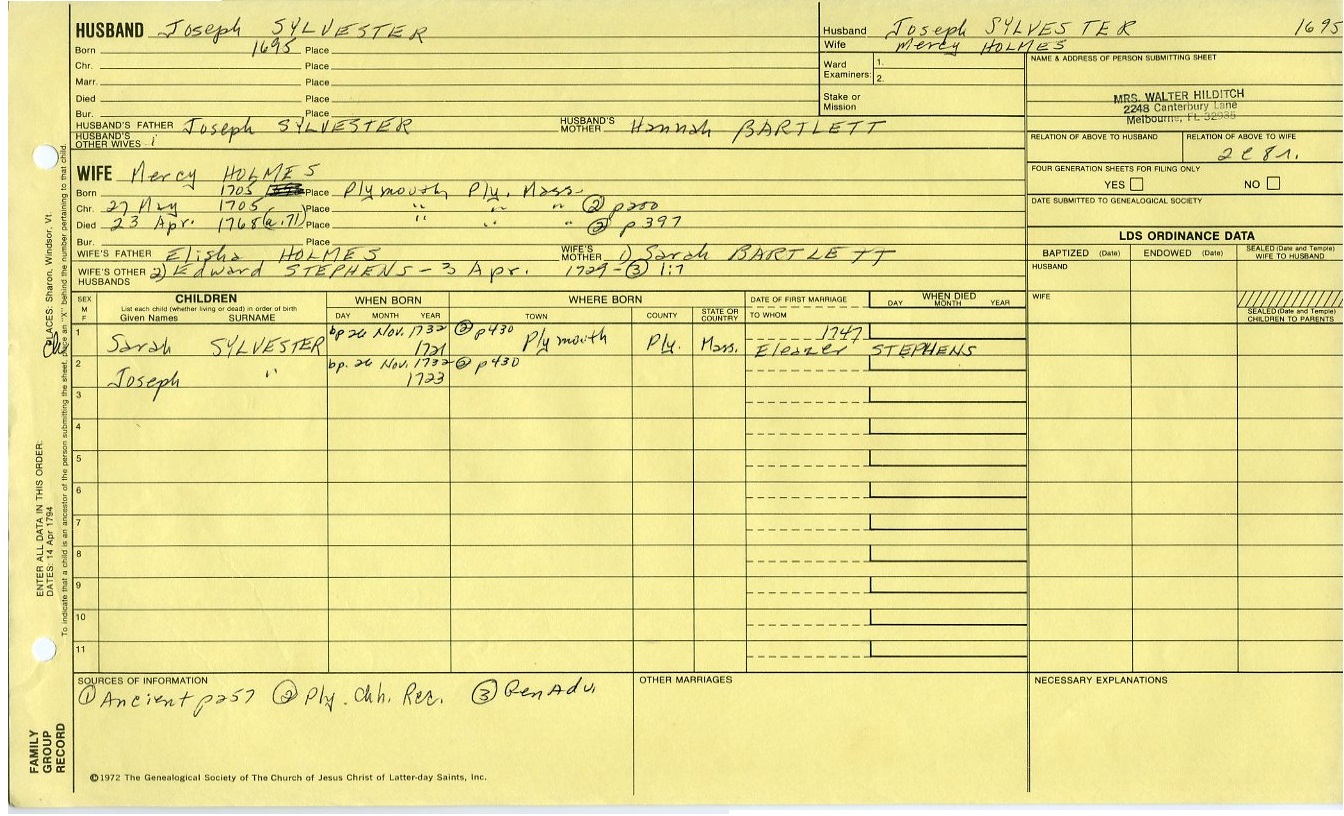 HUSBAND Joseph SYLVESTER
Born 1695 Place
Chr. Place
Marr. Place
Died Place
Bur. Place
HUSBAND'S FATHER Joseph SYLVESTER HUSBAND'S MOTHER Hannah BARTLETT
HUSBAND'S OTHER WIVES
Husband Joseph SYLVESTER 1695
Wife Mercy HOLMES
Ward Examiners: 1. 2.
Stake or Mission
NAME & ADDRESS OF PERSON SUBMITTING SHEET
MRS. WALTER HILDITCH
2248 Canterbury Lane
Melbourne, FL 32935
RELATION OF ABOVE TO HUSBAND RELATION OF ABOVE TO WIFE
FOUR GENERATION SHEETS FOR FILING ONLY
YES NO
DATE SUBMITTED TO GENEALOGICAL SOCIETY
WIFE Mercy HOLMES
Born 1705 Place Plymouth, Ply. Mass.
Chr. 27 May 1705 Place " " " ② p200
Died 23 Apr. 1768 (a.71) Place " " " ② p397
Bur. Place
WIFE'S FATHER Elisha HOLMES WIFE'S MOTHER 1) Sarah BARTLETT
WIFE'S OTHER HUSBANDS 2) Edward STEPHENS - 3 Apr. 1729 - ③ 1:7
LDS ORDINANCE DATA
BAPTIZED (Date) ENDOWED (Date) SEALED (Date and Temple) WIFE TO HUSBAND
HUSBAND
WIFE
SEALED (Date and Temple) CHILDREN TO PARENTS
SEX M F CHILDREN WHEN BORN WHERE BORN DATE OF FIRST MARRIAGE WHEN DIED
List each child (whether living or dead) in order of birth
Given Names SURNAME DAY MONTH YEAR TOWN COUNTY STATE OR COUNTRY TO WHOM DAY MONTH YEAR
1 bp 26 Nov. 1732 ② p430 1747
Sarah SYLVESTER 1721 Plymouth Ply. Mass. Eleazer STEPHENS
2 bp. 26 Nov. 1732 ② p430
Joseph " 1723
3
4
5
6
7
8
9
10
11
SOURCES OF INFORMATION OTHER MARRIAGES NECESSARY EXPLANATIONS
① Ancient p257 ② Ply. Chh. Rec. ③ Gen Adv.
©1972 The Genealogical Society of The Church of Jesus Christ of Latter-day Saints, Inc.
FAMILY GROUP RECORD
ENTER ALL DATA IN THIS ORDER:
DATES: 14 Apr 1794
PLACES: Sharon, Windsor, Vt.
To indicate that a child is an ancestor of the person submitting the sheet, place an "X" behind the number pertaining to that child.